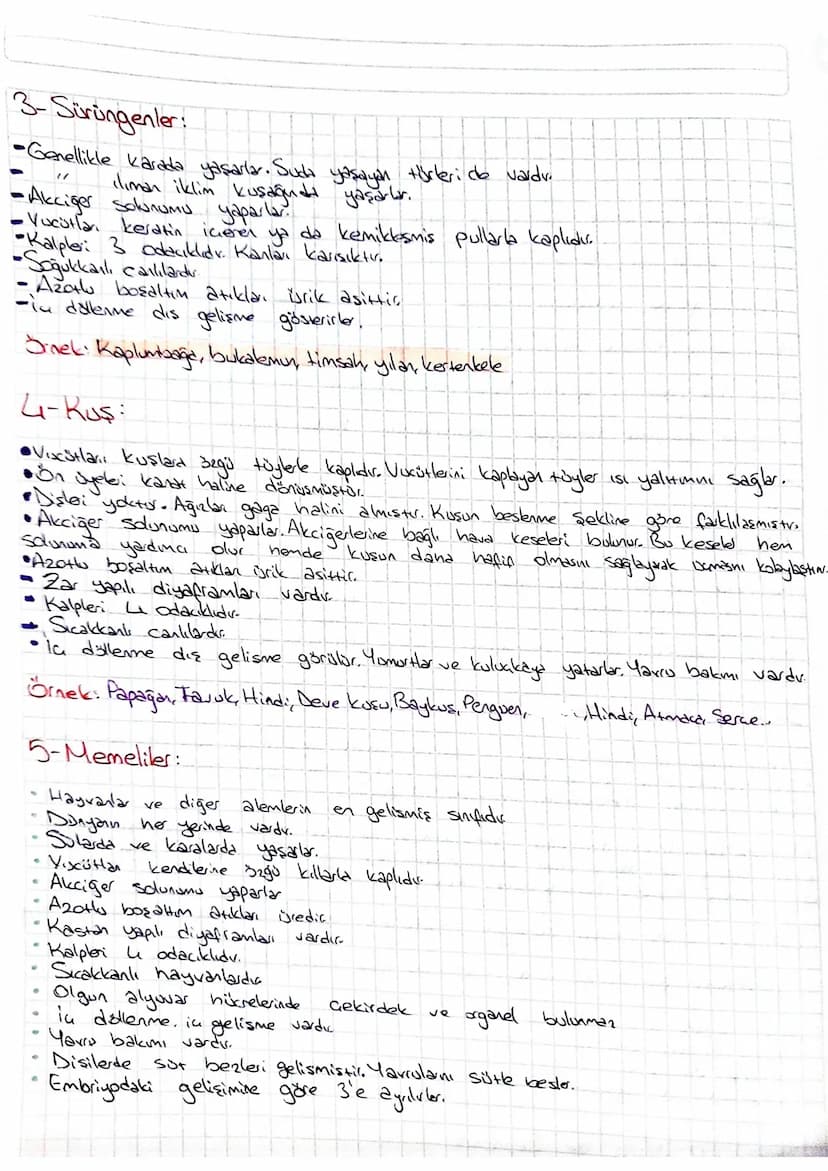 3- Sürüngenler:
- Genellikle karada yaşarlar. Suda yaşayan türleri de vardır.
- " ılıman iklim kuşağında yaşarlar.
- Akciğer solunumu yaparlar.
- Vücutları keratin içeren ya da kemikleşmiş pullarla kaplıdır.
- Kalpleri 3 odacıklıdır. Kanları karışıktır.
- Soğukkanlı canlılardır
- Azotlu boşaltım atıkları ürik asittir.
- iç döllenme dış gelişme gösterirler.
Örnek: Kaplumbağa, bukalemun, timsah, yılan, kertenkele
4- Kuş:
• Vücutları kuşlara özgü tüylerle kaplıdır. Vücutlerini kaplayan tüyler ısı yalıtımını sağlar.
• Ön üyeleri kanat haline dönüşmüştür.
• Dişleri yoktur. Ağızları gaga halini almıştır. Kuşun beslenme şekline göre farklılaşmıştır.
• Akciğer solunumu yaparlar. Akciğerlerine bağlı hava keseleri bulunur. Bu keseler hem
solunuma yardımcı olur hemde kuşun daha hafif olmasını sağlayarak uçmasını kolaylaştırır.
• Azotlu boşaltım atıkları ürik asittir.
- Zar yapılı diyaframları vardır
• Kalpleri 4 odacıklıdır.
→ Sıcakkanlı canlılardır.
• İç döllenme dış gelişme görülür. Yumurtlar ve kuluçkaya yatarlar. Yavru bakımı vardır.
Örnek: Papağan, Tavuk, Hindi, Deve kuşu, Baykuş, Penguen, ..., Hindi, Atmaca, Serçe..
5- Memeliler:
• Hayvanlar ve diğer alemlerin en gelişmiş sınıfıdır
• Dünyanın her yerinde vardır.
• Sularda ve karalarda yaşarlar.
• Vücutları kendilerine özgü kıllarla kaplıdır.
• Akciğer solunumu yaparlar
• Azotlu boşaltım atıkları üredir.
• Kastan yapılı diyaframları vardır.
• Kalpleri 4 odacıklıdır.
• Sıcakkanlı hayvanlardır
• Olgun alyuvar hücrelerinde çekirdek ve organel bulunmaz
• iç döllenme. iç gelişme vardır
• Yavru bakımı vardır.
• Dişilerde süt bezleri gelişmiştir. Yavrularını sütle besler.
• Embriyodaki gelişimine göre 3'e ayrılırlar.